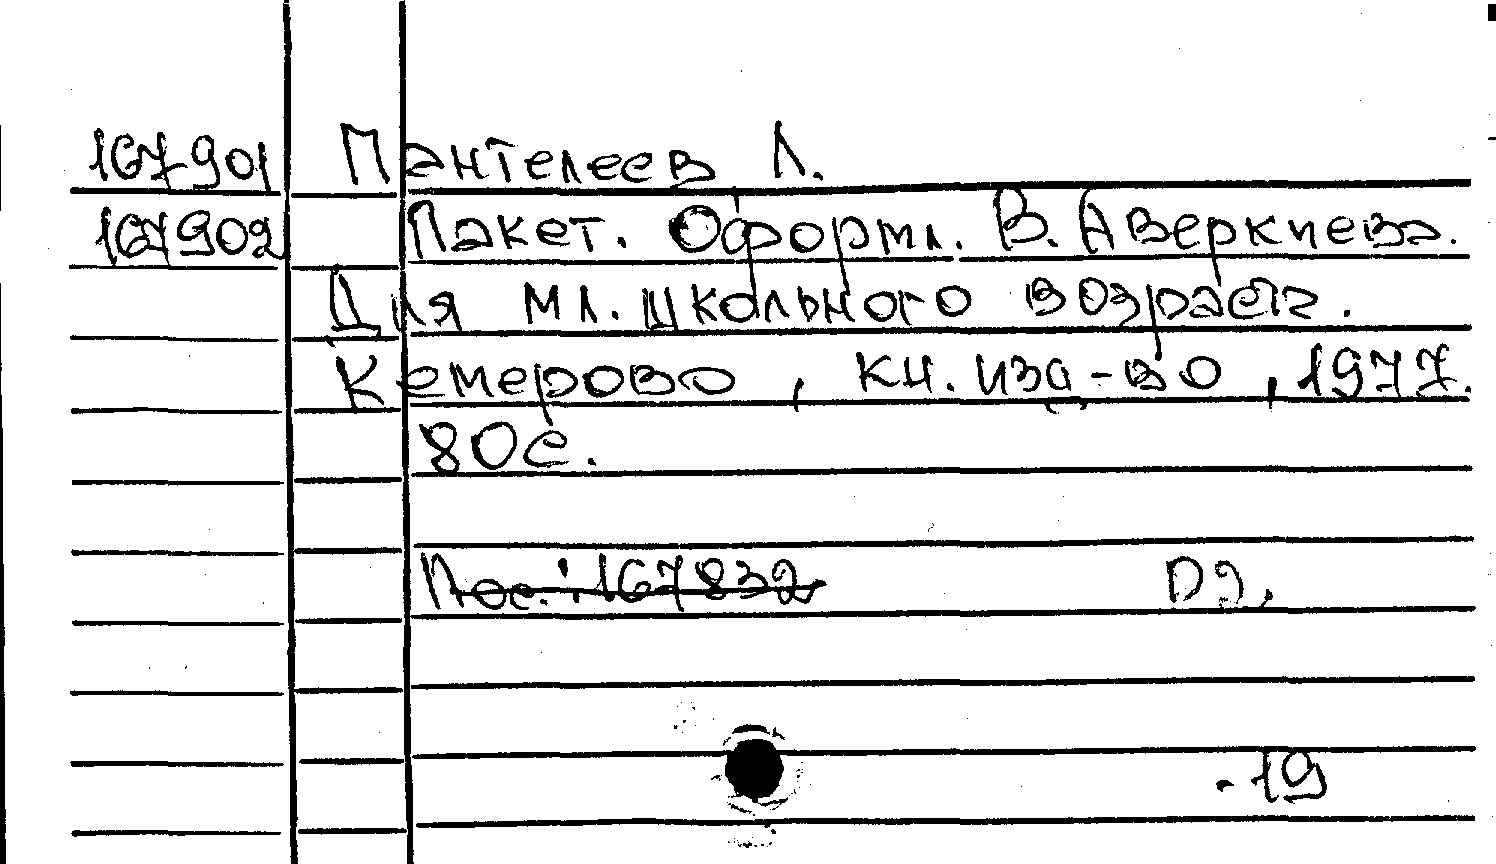 167901 Пантелеев Л.
167902 Пакет. Оформл. В. Аверкиева.
Для мл. школьного возраста.
Кемерово, кн. изд-во, 1977.
80с.
Пос.: 167832 D2.
-19